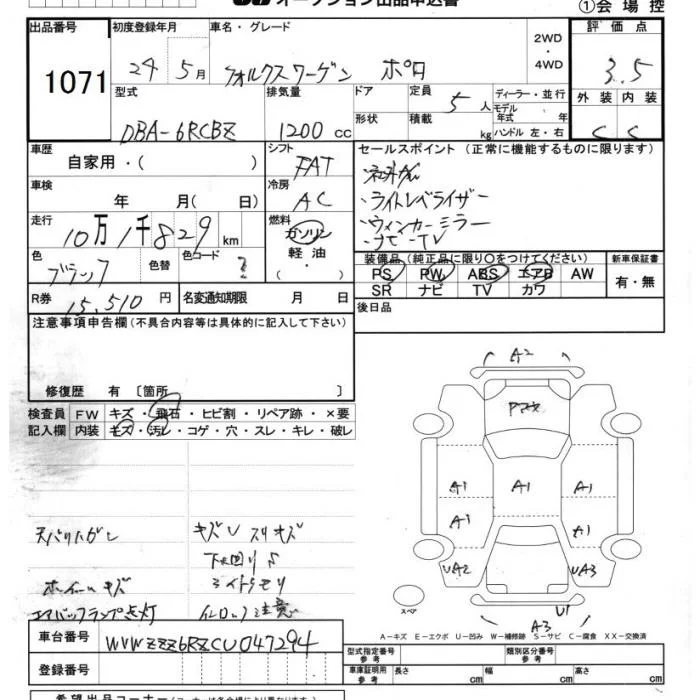 オークション出品申込書
①会場控
出品番号 初度登録年月 車名・グレード 2WD・4WD 評価点
1071 24 5月 フォルクスワーゲン ポロ 3.5
型式 排気量 ドア 定員 5人 ディーラー・並行 外装 内装
DBA-6RCBZ 1200cc 形状 積載 kg モデル年式 年 ハンドル 左・右 C C
車歴 自家用・( ) シフト FAT セールスポイント (正常に機能するものに限ります)
車検 年 月( 日) 冷房 AC
・ライトレベライザー
・ウィンカーミラー
・ナビ-TV
走行 10万1千829km 燃料 ガソリン・軽油・
色 ブラック 色替 色コード 装備品(純正品に限り〇をつけてください) 新車保証書
PS PW ABS エアB AW 有・無
SR ナビ TV カワ
R券 15,510円 名変通知期限 月 日 後日品
注意事項申告欄(不具合内容等は具体的に記入して下さい)
修復歴 有 〔箇所 〕
検査員 FW キズ・飛石・ヒビ割・リペア跡・×要
記入欄 内装 キズ・汚レ・コゲ・穴・スレ・キレ・破レ
A2
A1 A1 A1
A1 A1
UA2 UA3
U1
A3
スペア
天バリハガレ キズU スリキズ
下回りサ
ホイールキズ ミイトモリ
エアバックランプ点灯 注意
A－キズ E－エクボ U－凹み W－補修跡 S－サビ C－腐食 XX－交換済
車台番号 WVWZZZ6RZCU047294
登録番号
型式指定番号 参考 類別区分番号 参考
車庫証明用 参考 長さ cm 幅 cm 高さ cm
希望出品コーナー